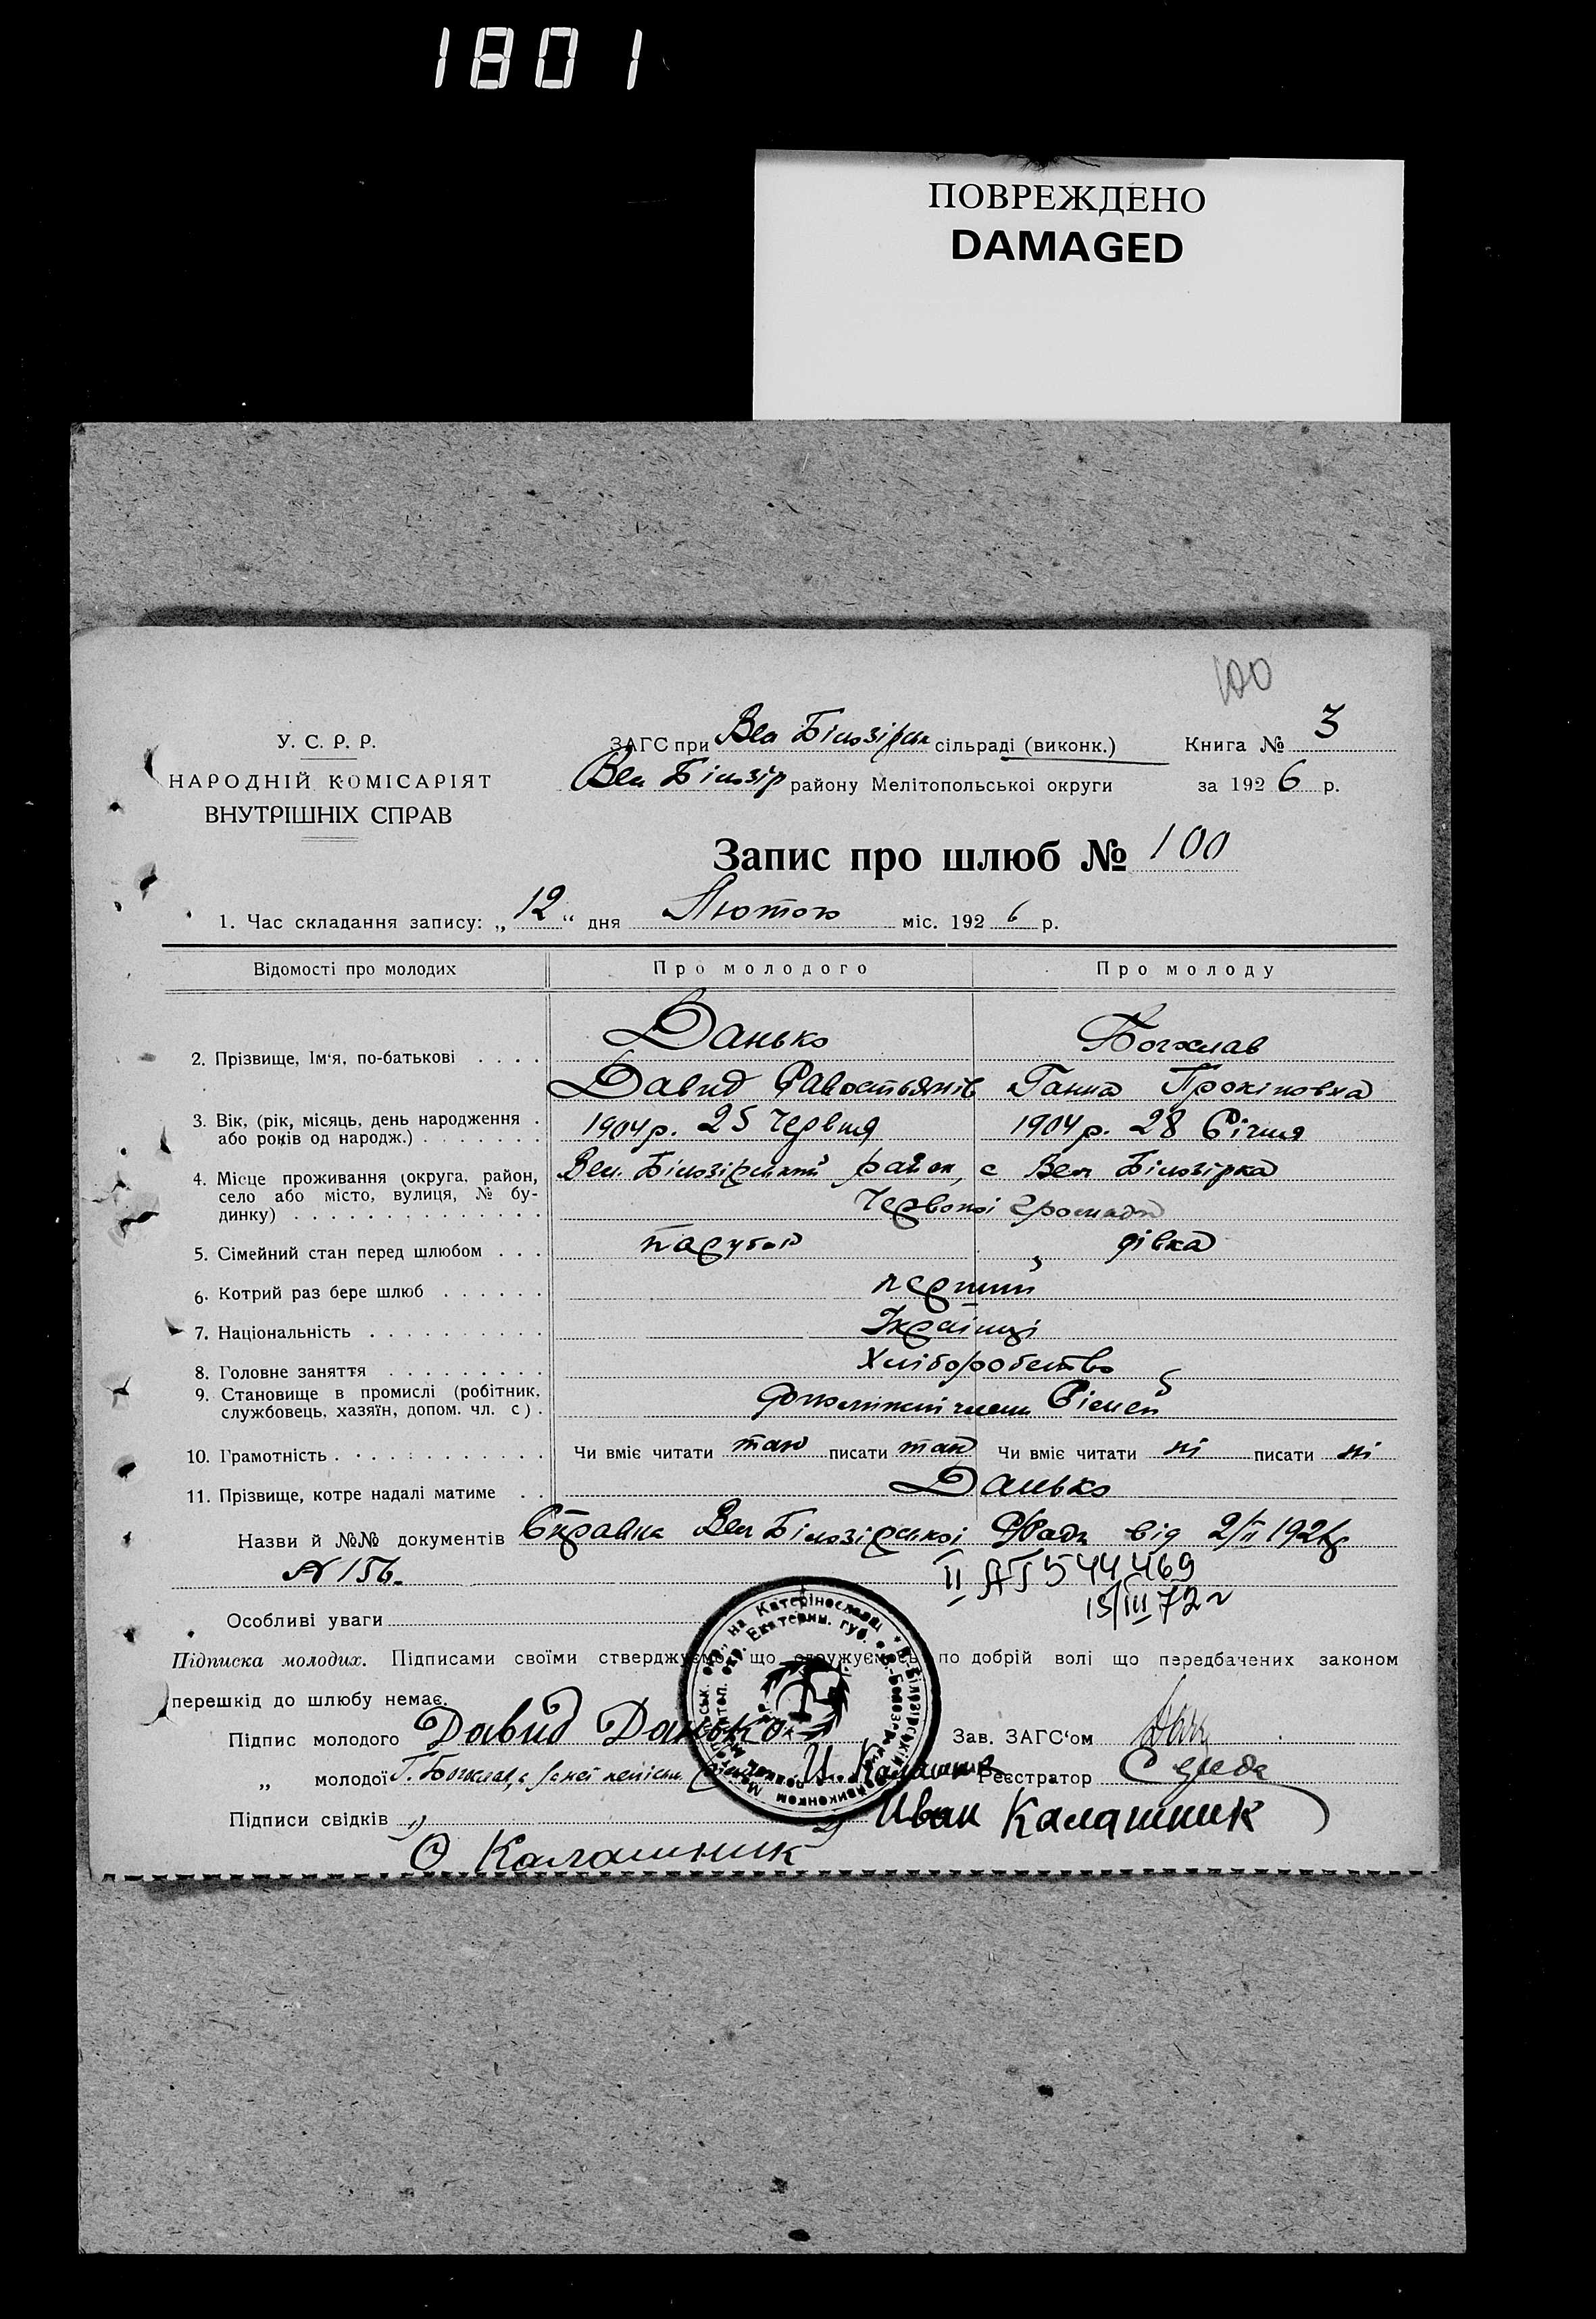 1801
ПОВРЕЖДЕНО
DAMAGED
100
У. С. Р. Р.
НАРОДНІЙ КОМІСАРІЯТ
ВНУТРІШНІХ СПРАВ
ЗАГС при Вел Білозірск сільраді (виконк.)
Вел Білозір району Мелітопольської округи
Книга № 3
за 1926 р.
Запис про шлюб № 100
1. Час складання запису: „12“ дня Лютого міс. 1926 р.
Відомості про молодих Про молодого Про молоду
2. Прізвище, Ім'я, по-батькові . . . . Данько Богслав
Давид Савостьянів Ганна Прокіповна
3. Вік, (рік, місяць, день народження . 1904 р. 25 Червня 1904 р. 28 Січня
або років од народж.) . . . . . . .
4. Місце проживання (округа, район, Вел. Білозірський район, с Вел Білозірка
село або місто, вулиця, № бу-
динку) . . . . . . . . . . . . . . Червоної Громади
5. Сімейний стан перед шлюбом . . . парубок дівка
6. Котрий раз бере шлюб . . . . . . перший
7. Національність . . . . . . . . . . Українці
8. Головне заняття . . . . . . . . . Хліборобство
9. Становище в промислі (робітник,
службовець, хазяїн, допом. чл. с) .
10. Грамотність . . . . . . . . . . . Чи вміє читати так писати так Чи вміє читати ні писати ні
11. Прізвище, котре надалі матиме . . Данько
Назви й №№ документів Справка Вел Білозірської від 2/II 192
№ 156.
II АГ 544469
15/III 72 г
Особливі уваги
Підписка молодих. Підписами своїми стверджуємо, що одружуємось по добрій волі що передбачених законом
перешкід до шлюбу немає.
Підпис молодого Давид Данько Зав. ЗАГС'ом
„ молодої Г. Богслав, а И. Калашник Реєстратор Середа
Підписи свідків 1) 2) Иван Калашник
О Калашник